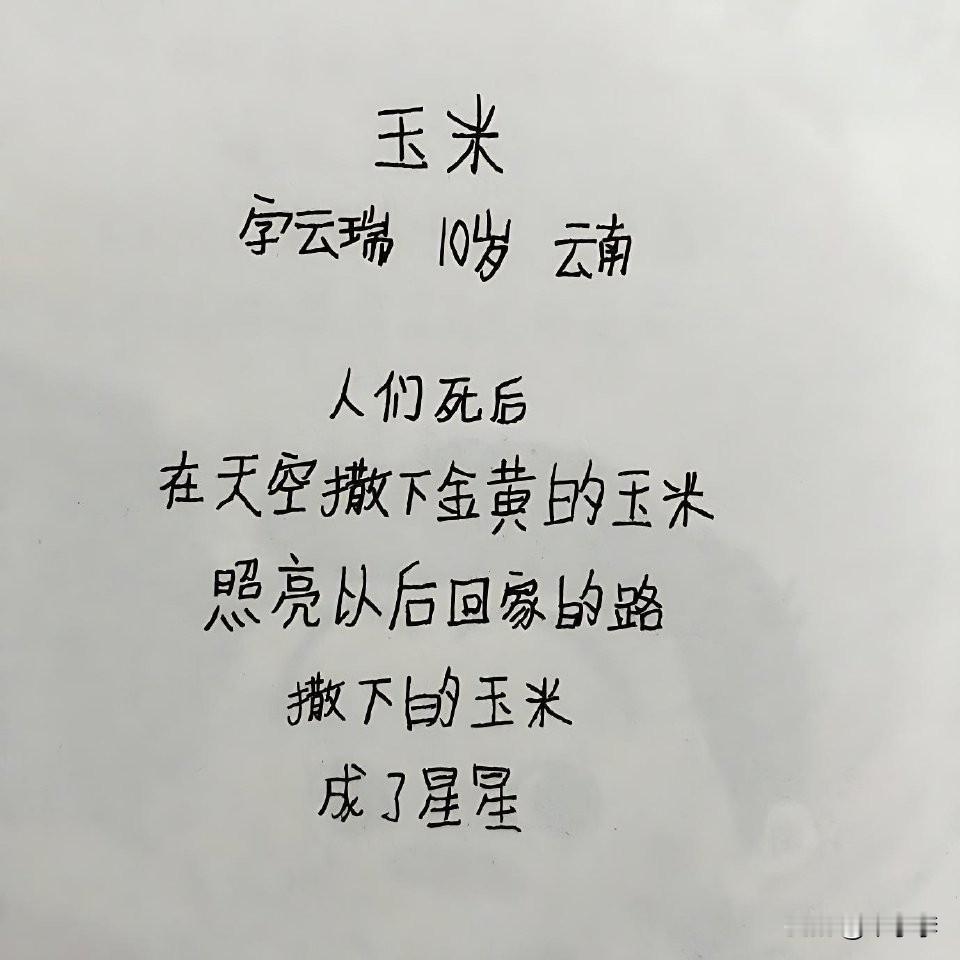 玉米
字云瑞 10岁 云南
人们死后
在天空撒下金黄的玉米
照亮以后回家的路
撒下的玉米
成了星星